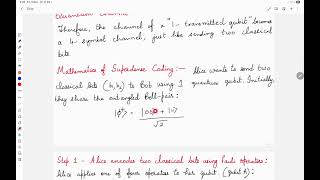 Therefore, the channel of a "1- transmitted qubit" became
a 4- symbol channel, just like sending two classical
bits
Mathematics of Superdense Coding :- Alice wants to send two
classical bits (b₁, b₂) to Bob using 1 quantum qubit. Initially
they share the entangled Bell-pair:
|ϕ⁺⟩ = |00⟩ + |11⟩
√2
Step 1 - Alice encodes two classical bits using Pauli operators:
Alice applies one of four operators to her qubit. (qubit A)